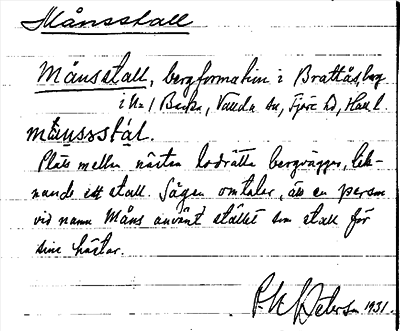 Månsstall
Månsstall, bergformation i Brattåsberg
i N=1 Backa, Vallda sn, Fjäre hd, Hall l.
Plats mellan nästan lodrätta bergväggar, lik-
nande ett stall. Sägen omtalar, att en person
vid namn Måns använt stället som stall för
sina hästar.
1931.